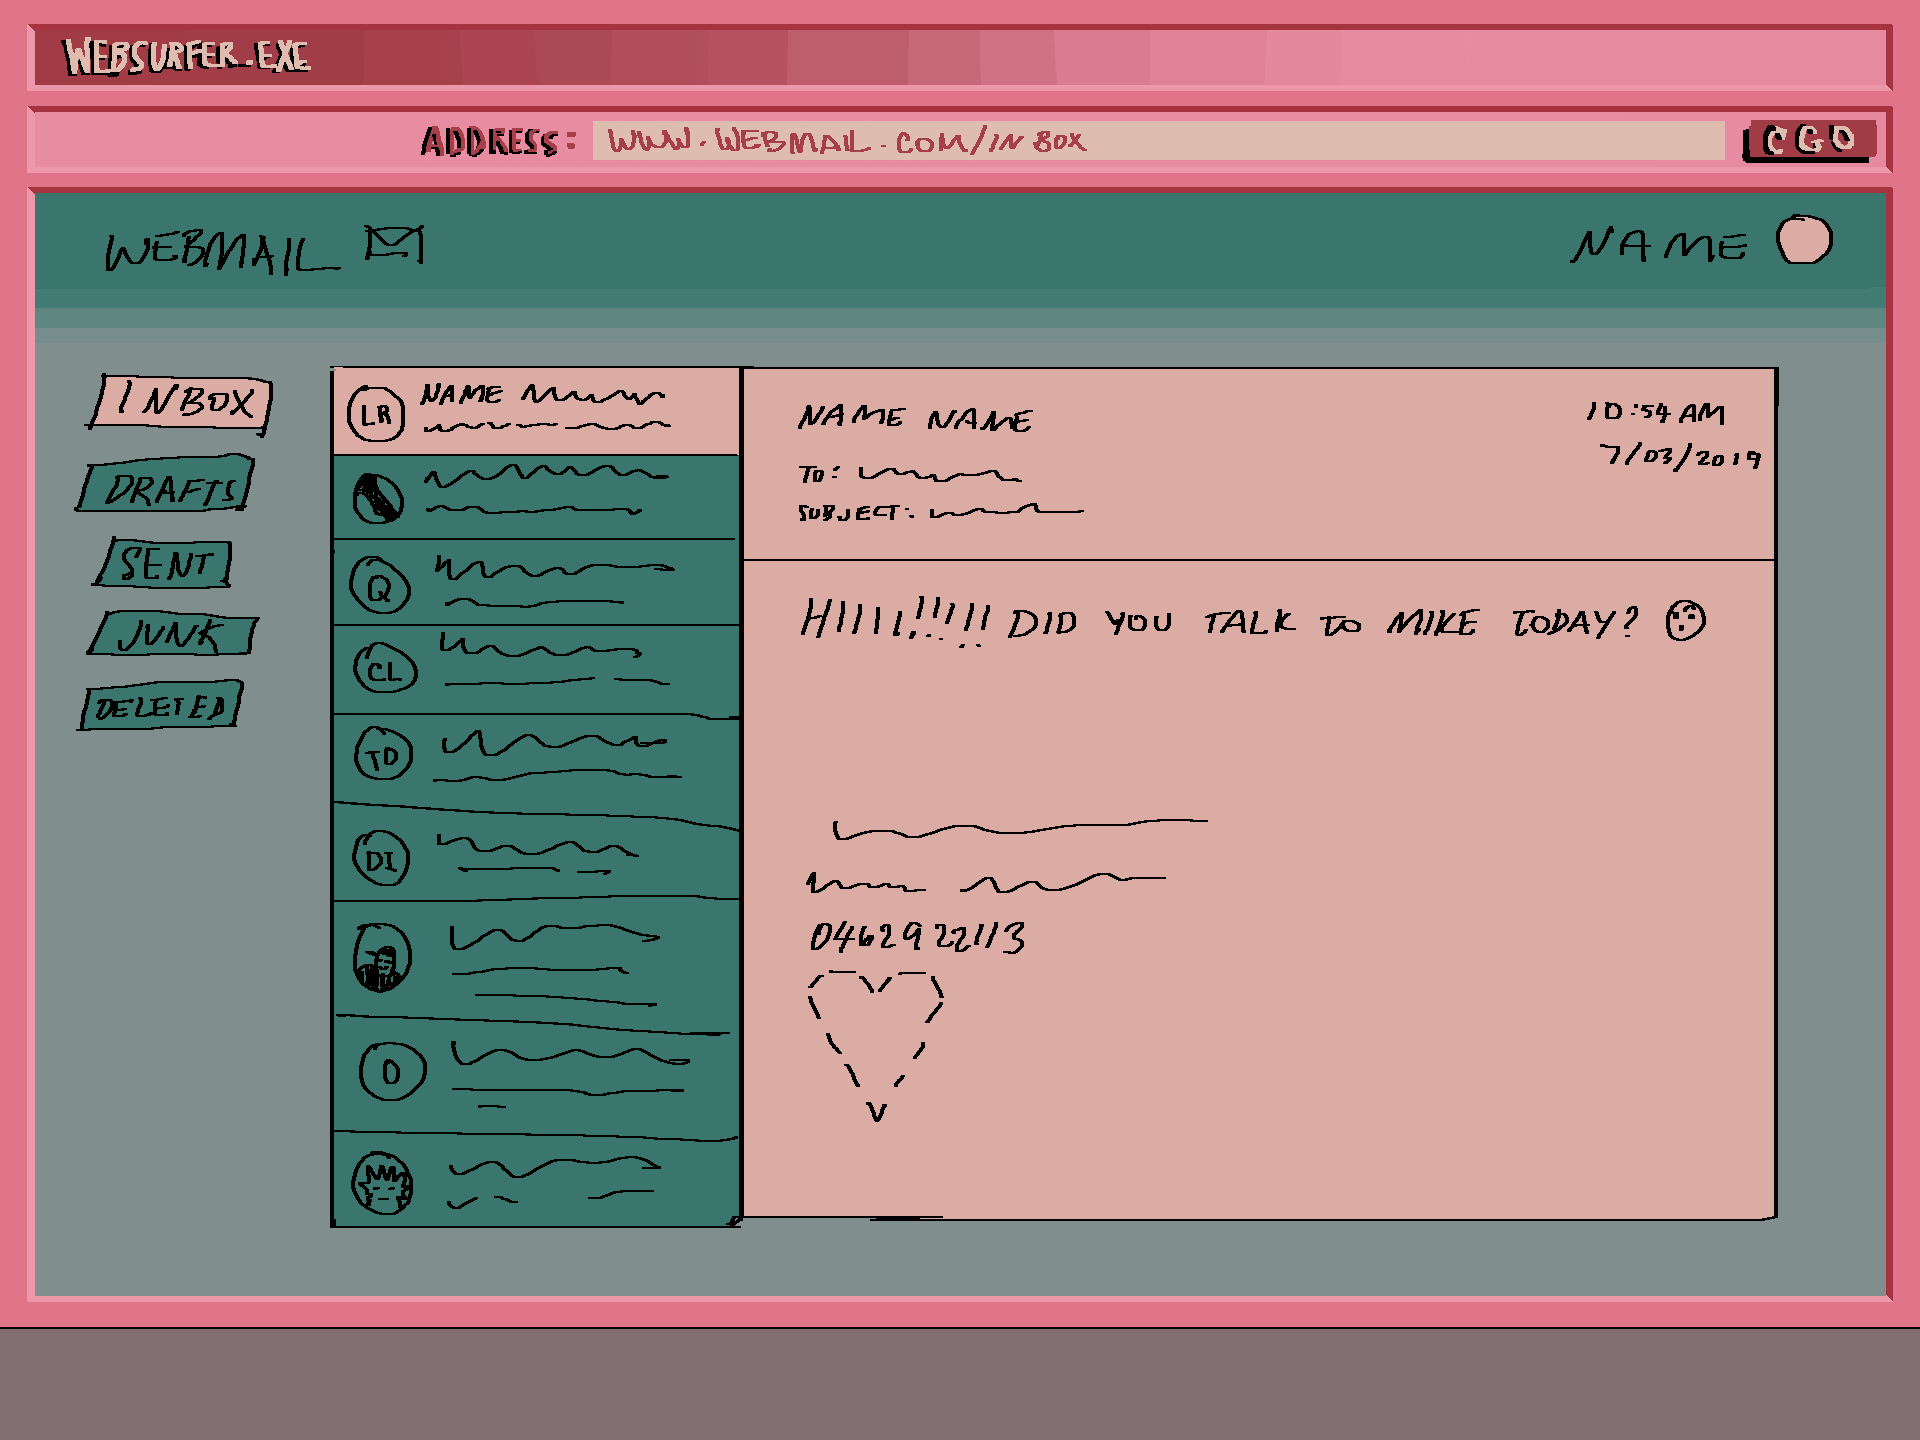 WEBSURFER.EXE
ADDRESS: WWW.WEBMAIL.COM/INBOX
CGO
WEBMAIL
NAME
INBOX
DRAFTS
SENT
JUNK
DELETED
LR
NAME
Q
CL
TD
DI
O
NAME NAME
10:54 AM
7/03/2019
TO:
SUBJECT:
HIIII!!!!! DID YOU TALK TO MIKE TODAY?
0462922113